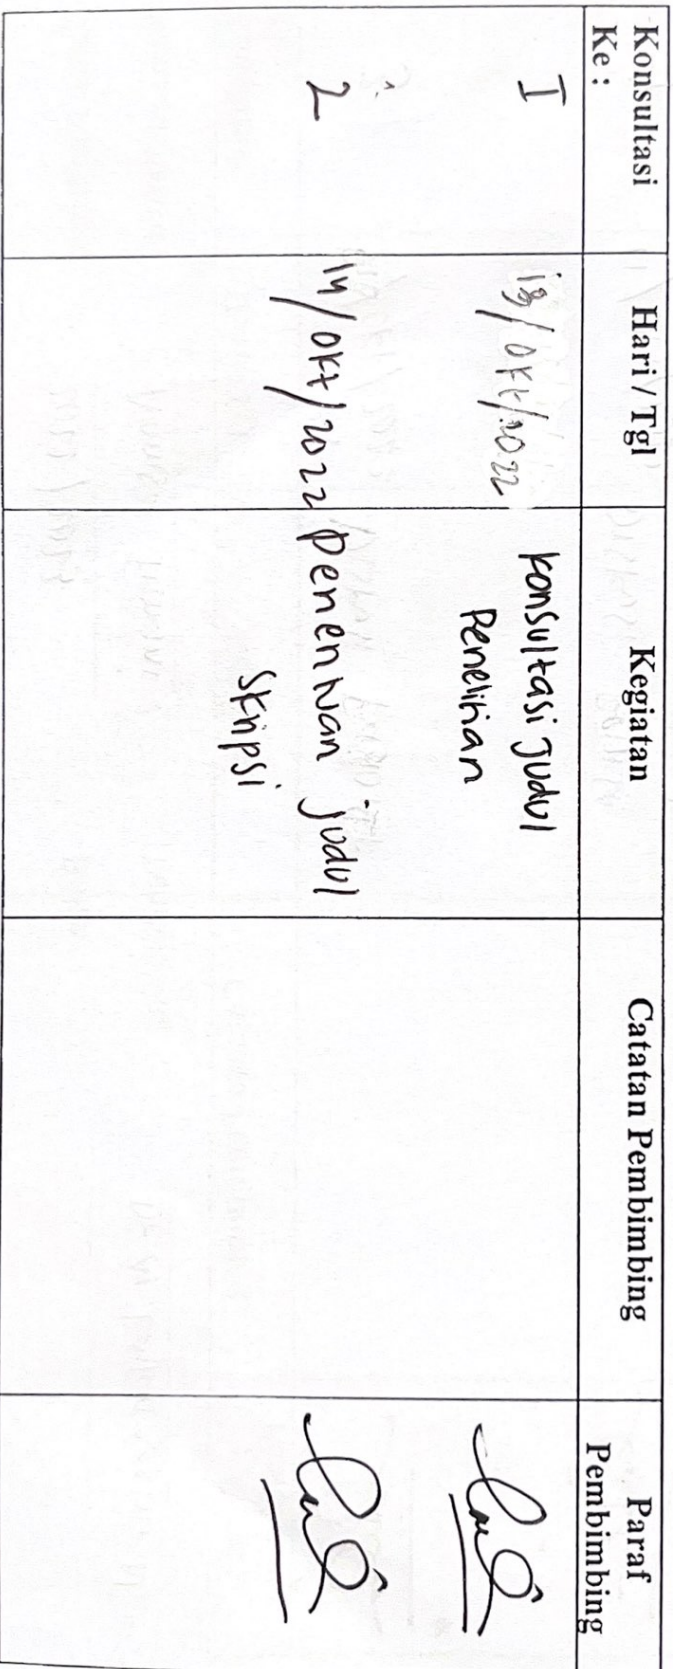 Konsultasi
Ke :
Hari / Tgl
Kegiatan
Catatan Pembimbing
Paraf
Pembimbing
I
/ Okt / 2022
konsultasi judul
Penelitian
2
14 / Okt / 2022
penentuan judul
Skripsi